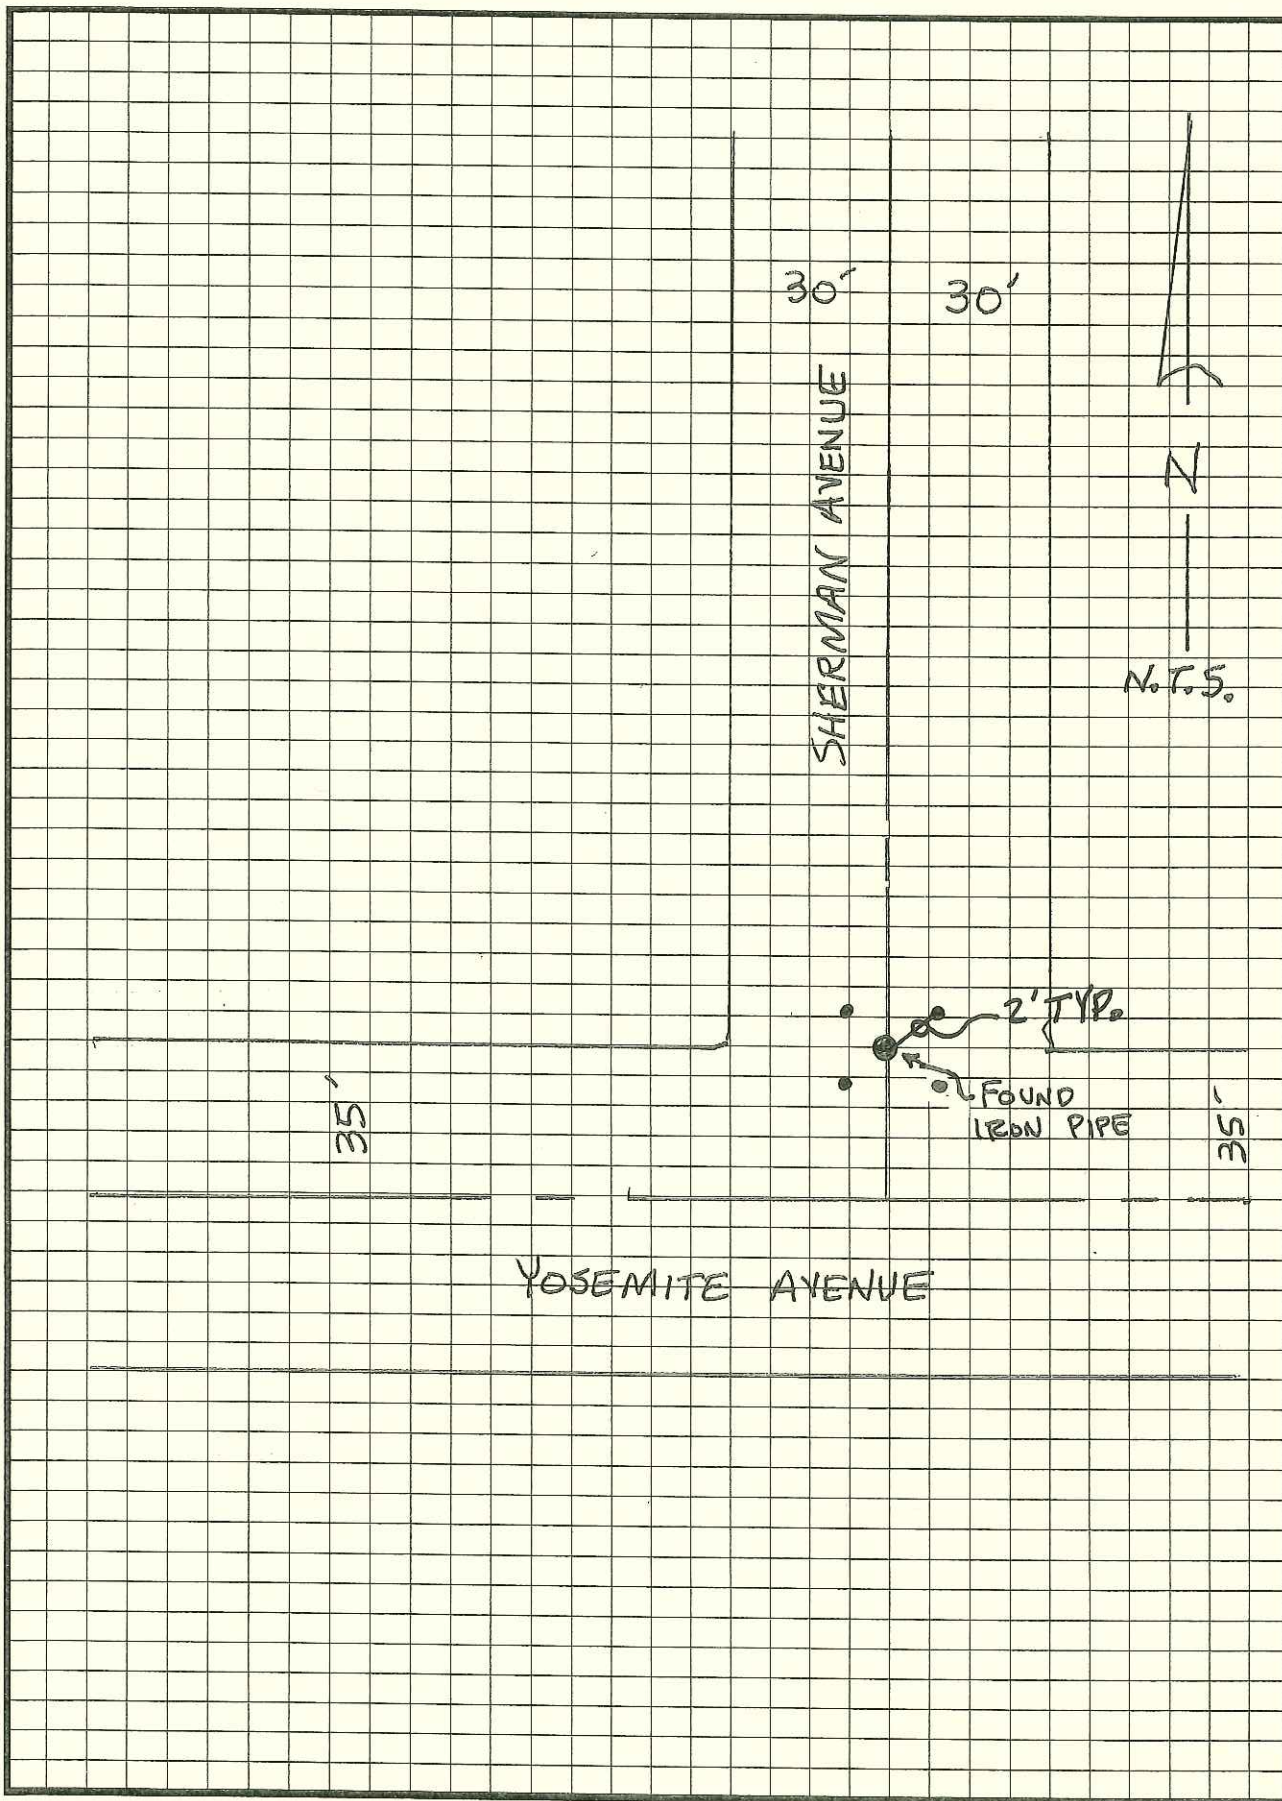 30'
30'
SHERMAN AVENUE
N
N.T.S.
2' TYP.
FOUND
IRON PIPE
35'
35'
YOSEMITE AVENUE